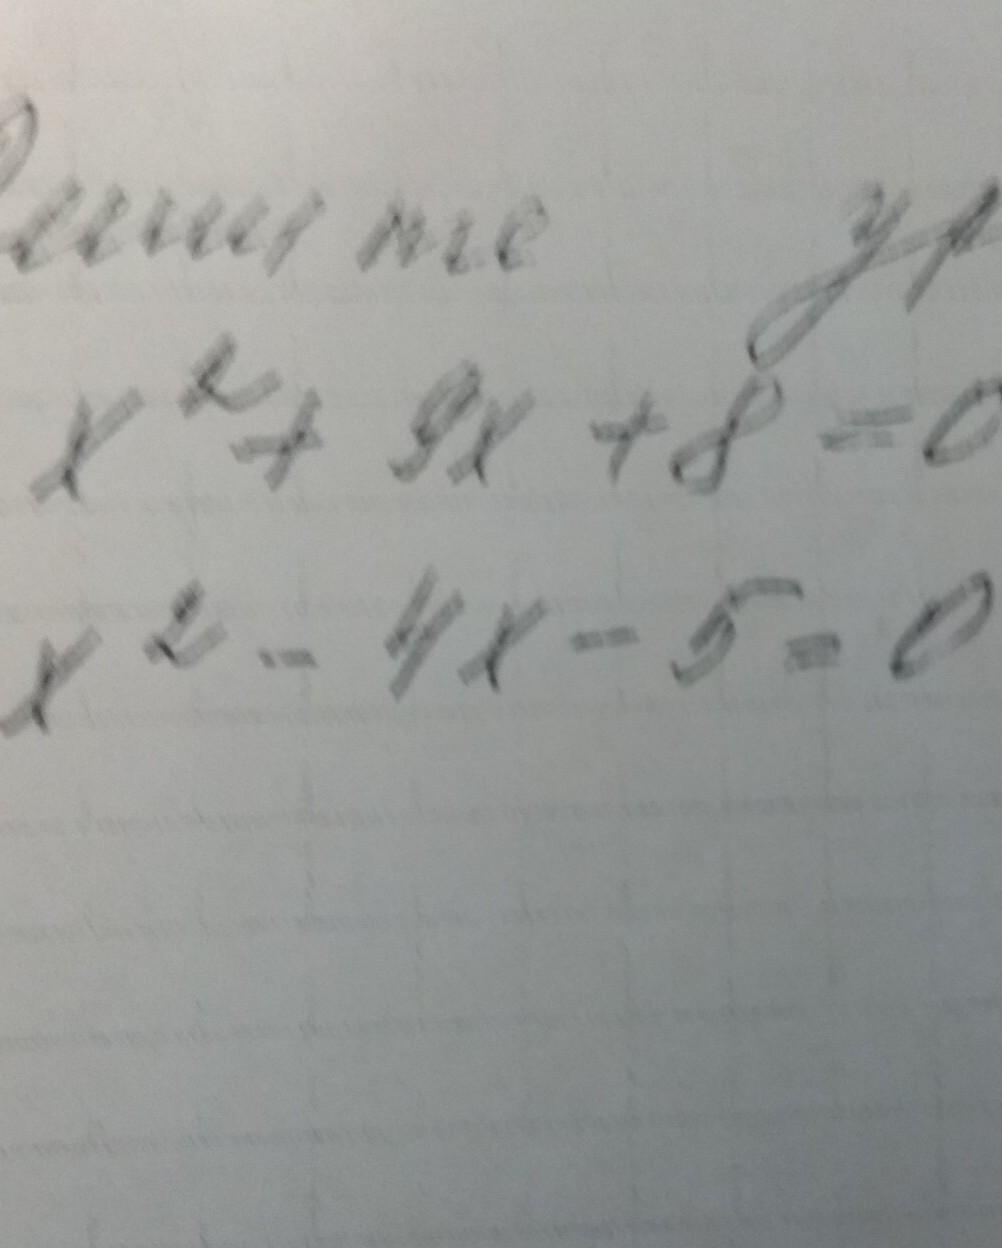 Решите ур
x² + 9x + 8 = 0
x² - 4x - 5 = 0